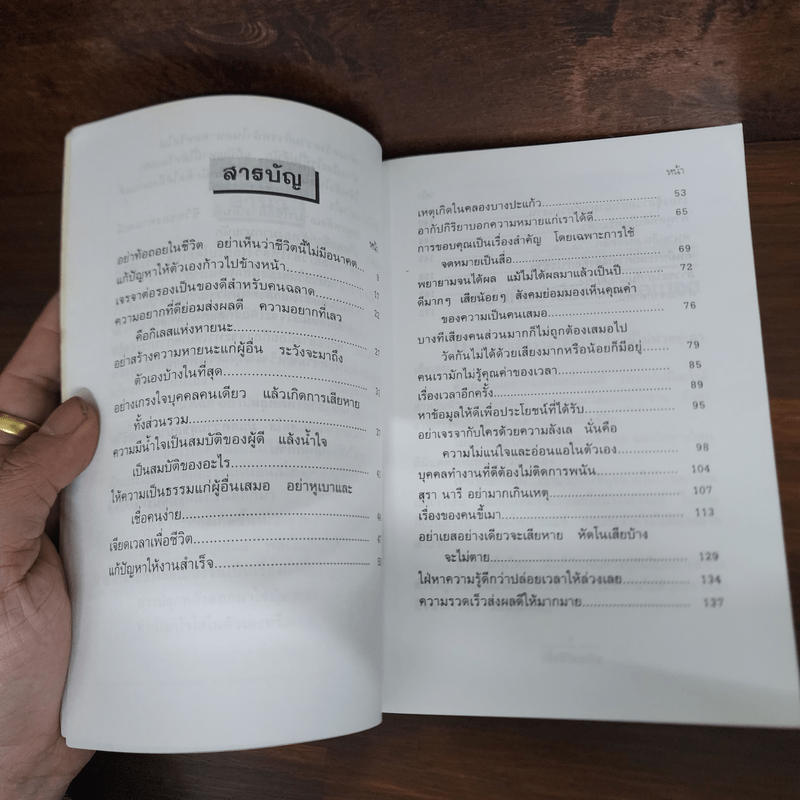 สารบัญ
อย่าท้อถอยในชีวิต อย่าเห็นว่าชีวิตนี้ไม่มีอนาคต...
แก้ปัญหาให้ตัวเองก้าวไปข้างหน้า....................
เจรจาต่อรองเป็นของดีสำหรับคนฉลาด....................
ความอยากที่ดีย่อมส่งผลดี ความอยากที่เลว
คือกิเลสแห่งหายนะ....................
อย่าสร้างความหายนะแก่ผู้อื่น ระวังจะมาถึง
ตัวเองบ้างในที่สุด....................
อย่างเกรงใจบุคคลคนเดียว แล้วเกิดการเสียหาย
ทั้งส่วนรวม....................
ความมีน้ำใจเป็นสมบัติของผู้ดี แล้งน้ำใจ
เป็นสมบัติของอะไร....................
ให้ความเป็นธรรมแก่ผู้อื่นเสมอ อย่าหูเบาและ
เชื่อคนง่าย....................
เจียดเวลาเพื่อชีวิต....................
แก้ปัญหาให้งานสำเร็จ....................
หน้า
เหตุเกิดในคลองบางปะแก้ว.................... 53
อากัปกิริยาบอกความหมายแก่เราได้ดี.................... 65
การขอบคุณเป็นเรื่องสำคัญ โดยเฉพาะการใช้
จดหมายเป็นสื่อ.................... 69
พยายามจนได้ผล แม้ไม่ได้ผลมาแล้วเป็นปี.................... 72
ดีมากๆ เสียน้อยๆ สังคมย่อมมองเห็นคุณค่า
ของความเป็นคนเสมอ.................... 76
บางทีเสียงคนส่วนมากก็ไม่ถูกต้องเสมอไป
วัดกันไม่ได้ด้วยเสียงมากหรือน้อยก็มีอยู่........ 79
คนเรามักไม่รู้คุณค่าของเวลา.................... 85
เรื่องเวลาอีกครั้ง.................... 89
หาข้อมูลให้ดีเพื่อประโยชน์ที่ได้รับ.................... 95
อย่าเจรจากับใครด้วยความลังเล นั่นคือ
ความไม่แน่ใจและอ่อนแอในตัวเอง.................... 98
บุคคลทำงานที่ดีต้องไม่ติดการพนัน.................... 104
สุรา นารี อย่ามากเกินเหตุ.................... 107
เรื่องของคนขี้เมา.................... 113
อย่าเยสอย่างเดียวจะเสียหาย หัดโนเสียบ้าง
จะไม่ตาย.................... 129
ใฝ่หาความรู้ดีกว่าปล่อยเวลาให้ล่วงเลย.................... 134
ความรวดเร็วส่งผลดีให้มากมาย.................... 137